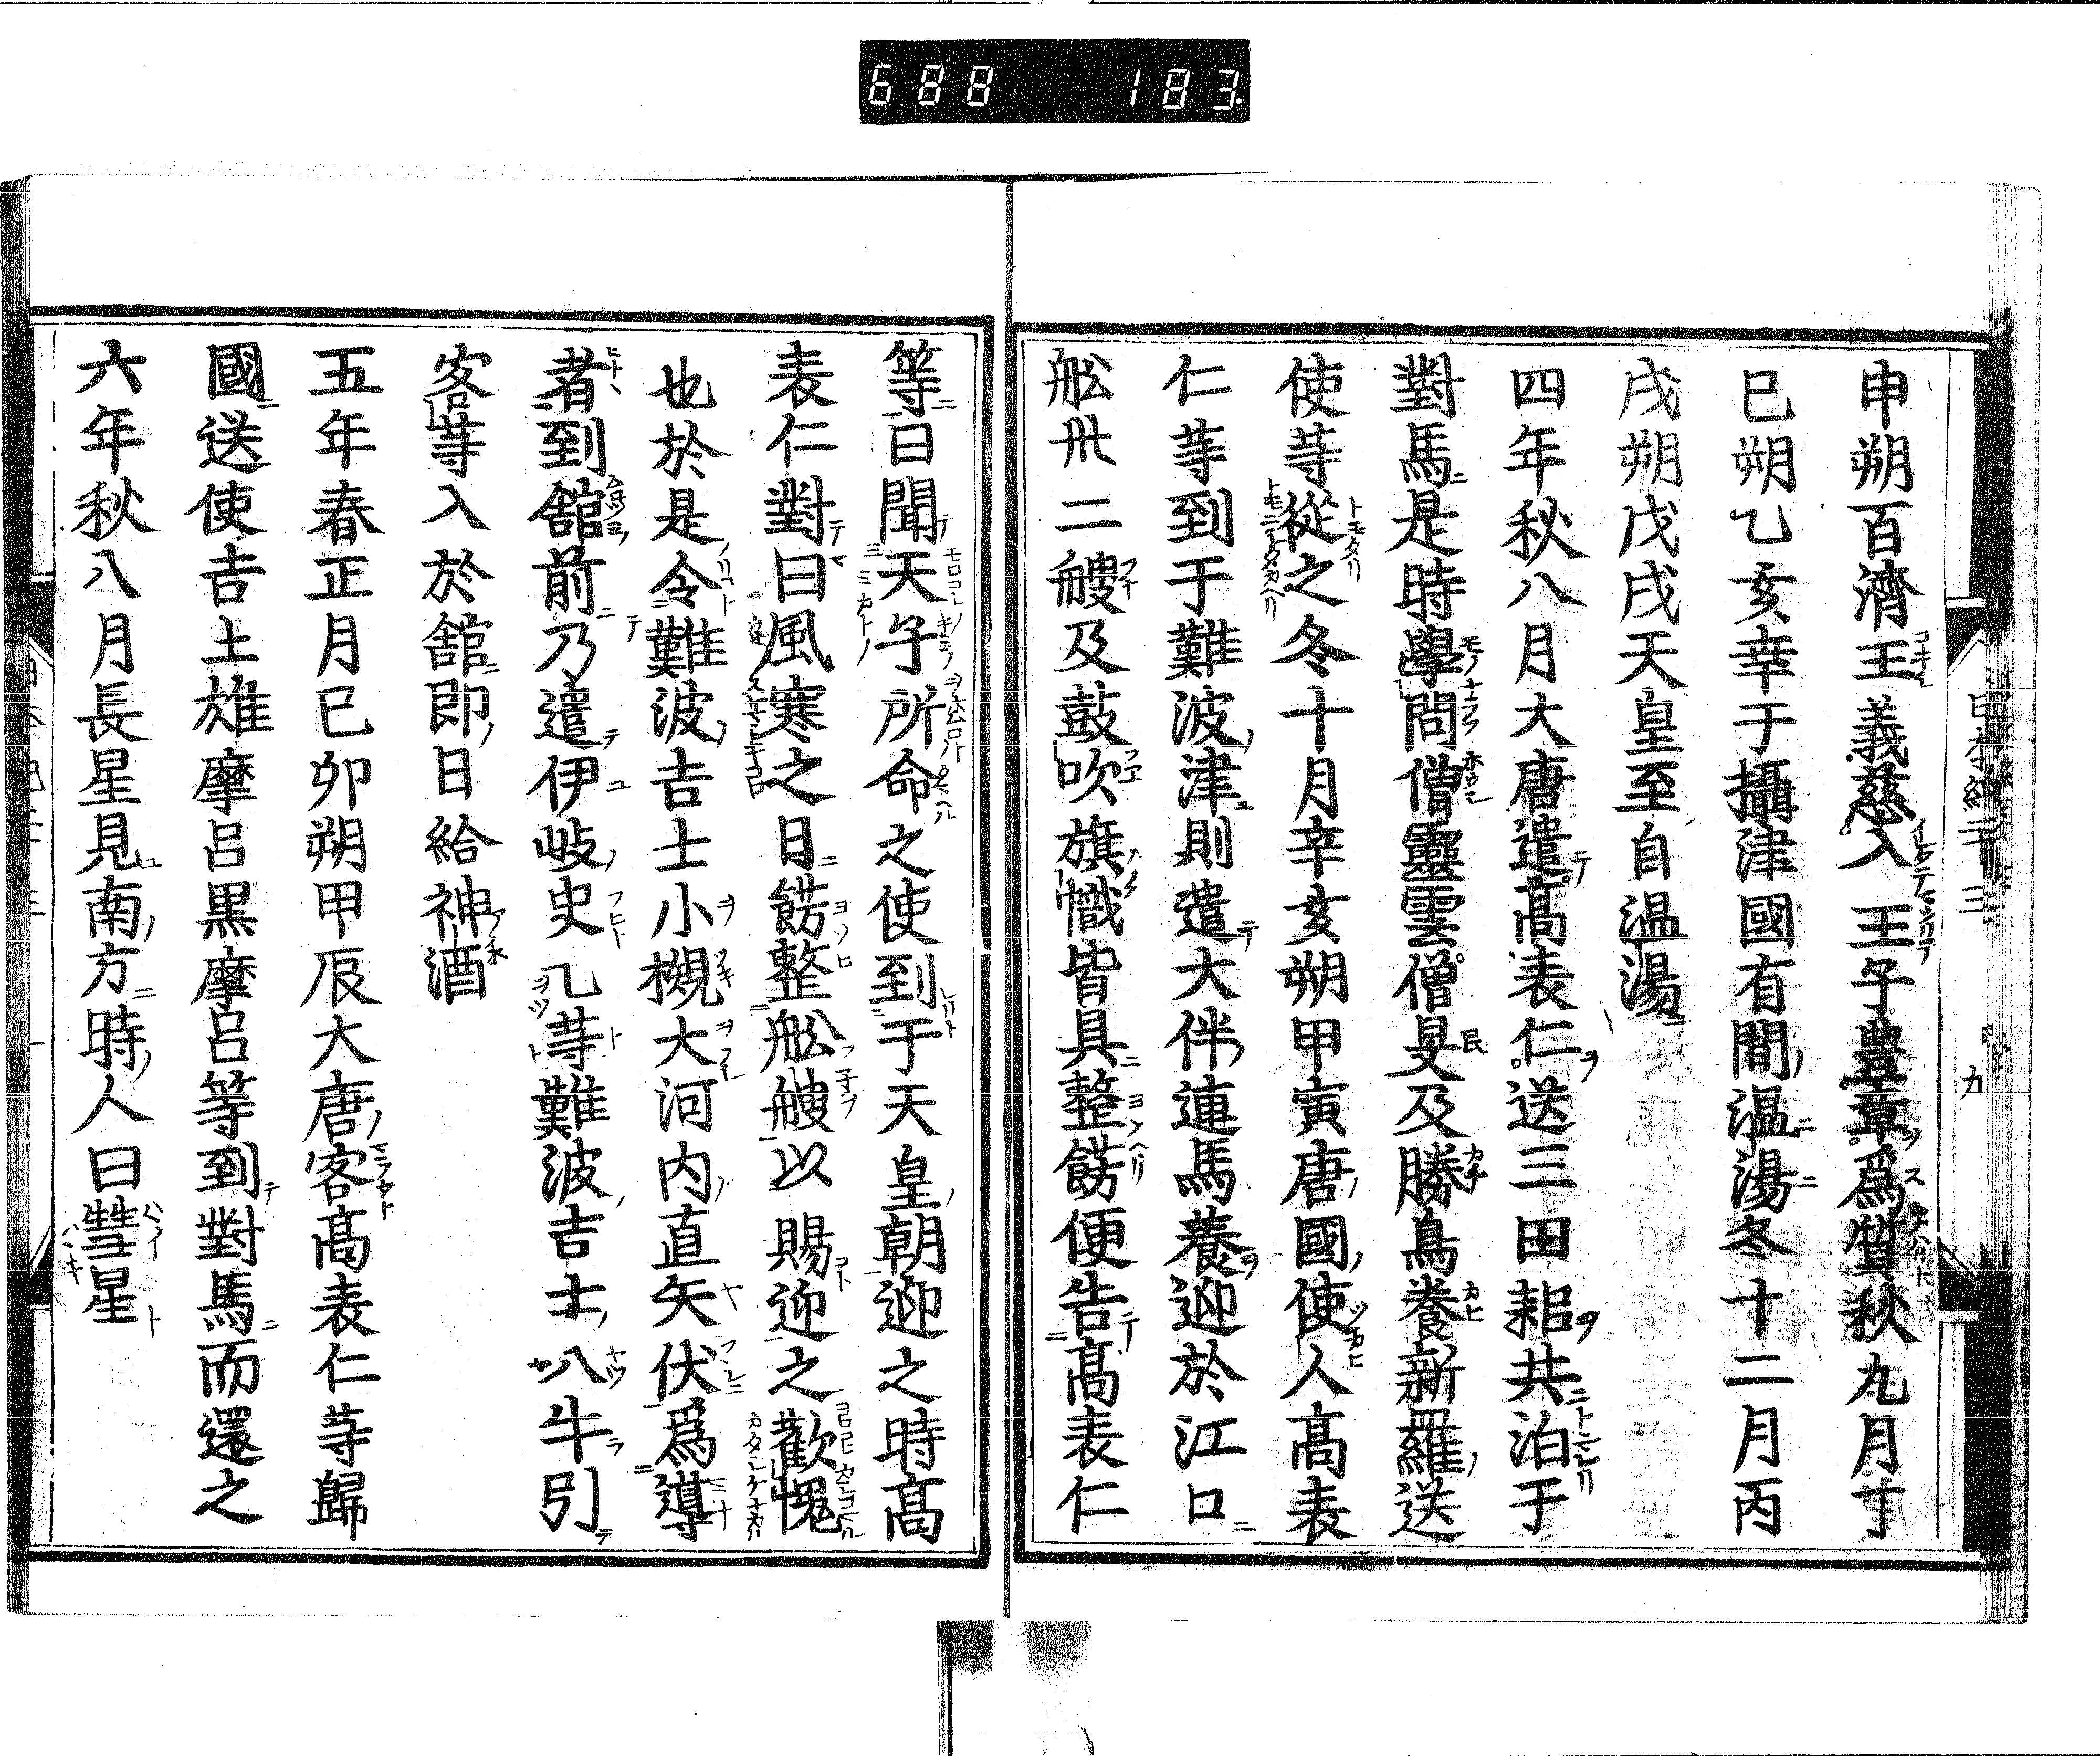 688 183
申朔百濟王義慈入王子豊章爲質秋九月丁
巳朔乙亥幸于攝津國有間温湯冬十二月丙
戌朔戊戌天皇至自温湯
四年秋八月大唐遣髙表仁送三田耜共泊于
對馬是時學問僧靈雲僧旻及勝鳥養新羅送
使等從之冬十月辛亥朔甲寅唐國使人髙表
仁等到于難波津則遣大伴連馬養迎於江口
舩卅二艘及鼓吹旗幟皆具整餝便告髙表仁
等曰聞天子所命之使到于天皇朝迎之時髙
表仁對曰風寒之日餝整舩艘以賜迎之歡愧
也於是令難波吉士小槻大河内直矢伏爲導
者到舘前乃遣伊岐史乙等難波吉士八牛引
客等入於舘即日給神酒
五年春正月己卯朔甲辰大唐客髙表仁等歸
國送使吉士雄摩呂黒摩呂等到對馬而還之
六年秋八月長星見南方時人曰彗星